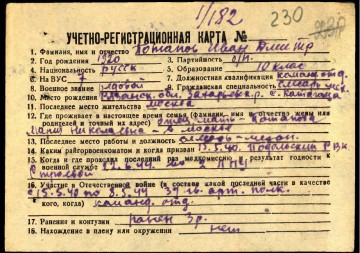 1/182
230
УЧЕТНО-РЕГИСТРАЦИОННАЯ КАРТА №
1. Фамилия, имя и отчество Потапов Иван Дмитр
2. Год рождения 1920 3. Партийность б/п
4. Национальность русск 5. Образование 10 класс
6. № ВУС 7 7. Должностная квалификация команд. отд.
8. Военное звание рядовой 9. Гражданская специальность слесарь
10. Место рождения обл.
11. Последнее место жительства Москва
12. Где проживает в настоящее время семья (фамилия, имя и отчество жены или
родителей и точный их адрес) мать - Потапова
Николаевна - г. Москва
13. Последнее место работы и должность
14. Каким райвоенкоматом и когда призван 15.5.40. Подольский РВК
15. Когда и где проходил последний раз медкомиссию, результат годности к
военной службе 12.6.44
Строевой
16. Участие в Отечественной войне (в составе какой последней части в качестве
кого, когда) арт. полк.
команд. отд.
17. Ранения и контузии ранен 3 р.
18. Нахождение в плену или окружении нет